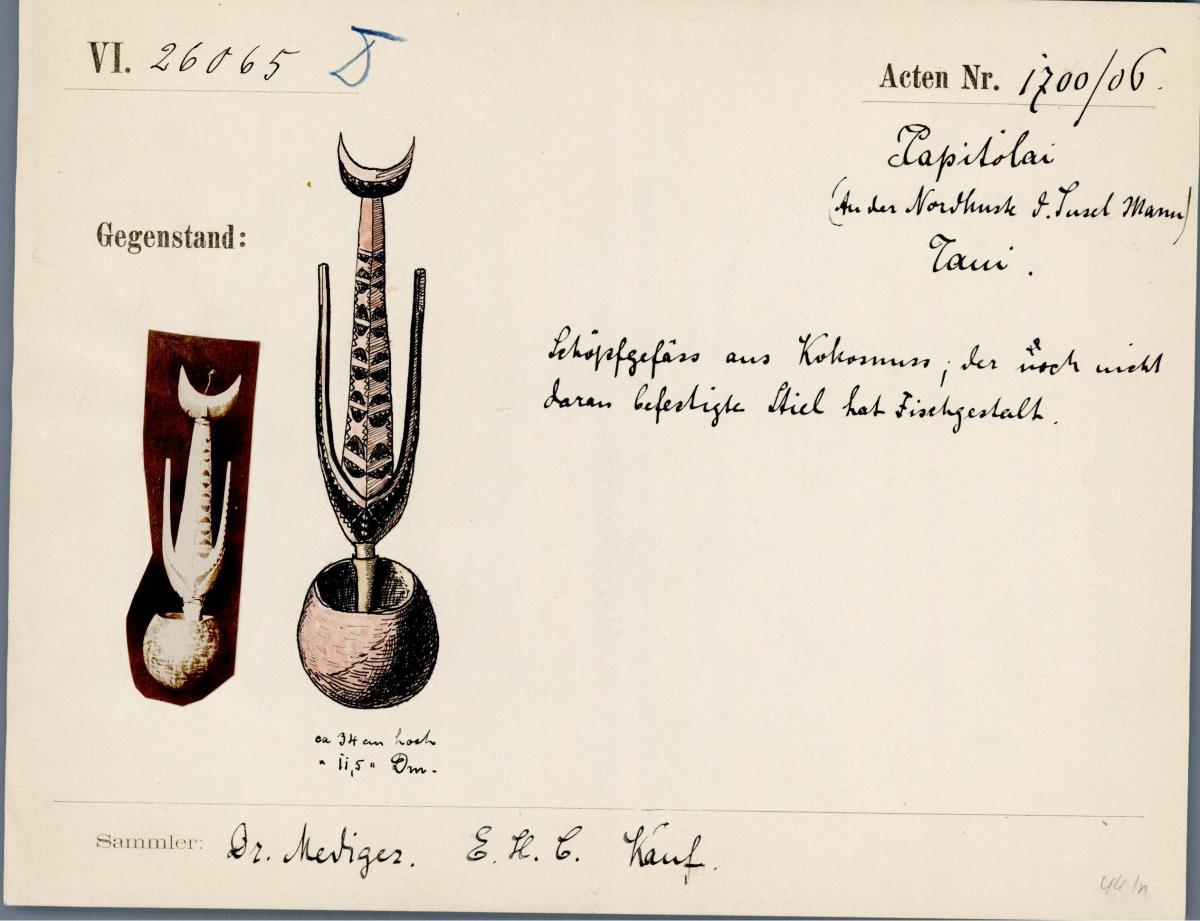 VI. 26065
Acten Nr. 1700/06.
Papitolai
(An der Nordkuste d. Insel Manu)
Taui.
Gegenstand:
Schöpfgefäss aus Kokosnuss; der noch nicht
daran befestigte Stiel hat Fischgestalt.
ca 34 cm hoch
" 11,5 " Dm.
Sammler: Dr. Mediger. E. H. C. Kauf.